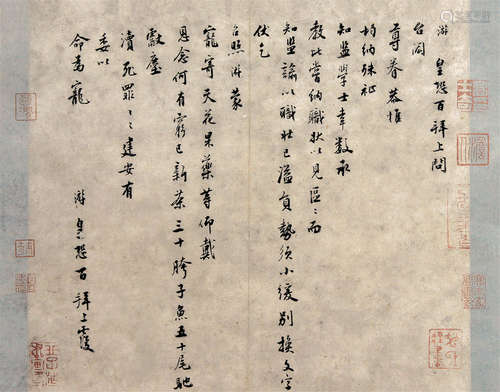 游 皇恐百拜上問
台閤
尊眷恭惟
均納殊祉
知監學士幸數承
教此嘗納職狀以見區〻而
知監謙以職狀已溢員勢須小緩別換文字
伏乞
台照游蒙
寵寄天花果藥等仰戴
恩念何有窮已新茶三十胯子魚五十尾馳
獻塵
瀆死罪〻〻建安有
委以
命為寵
游 皇恐百拜上覆